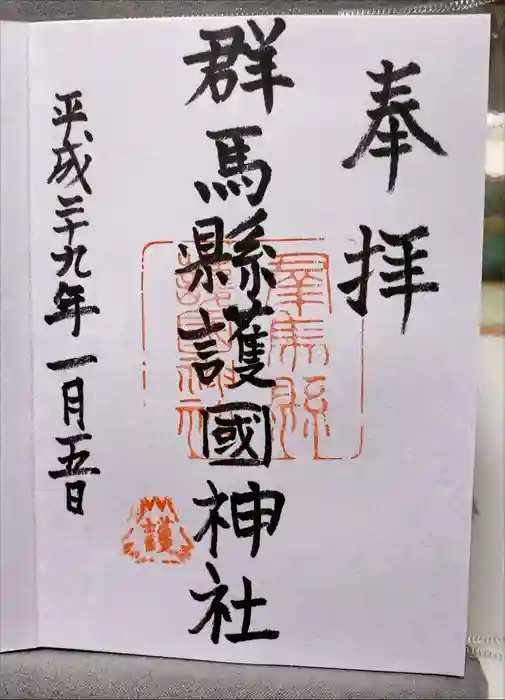 奉拝
群馬縣護國神社
群馬縣護國神社
護
平成二十九年一月五日